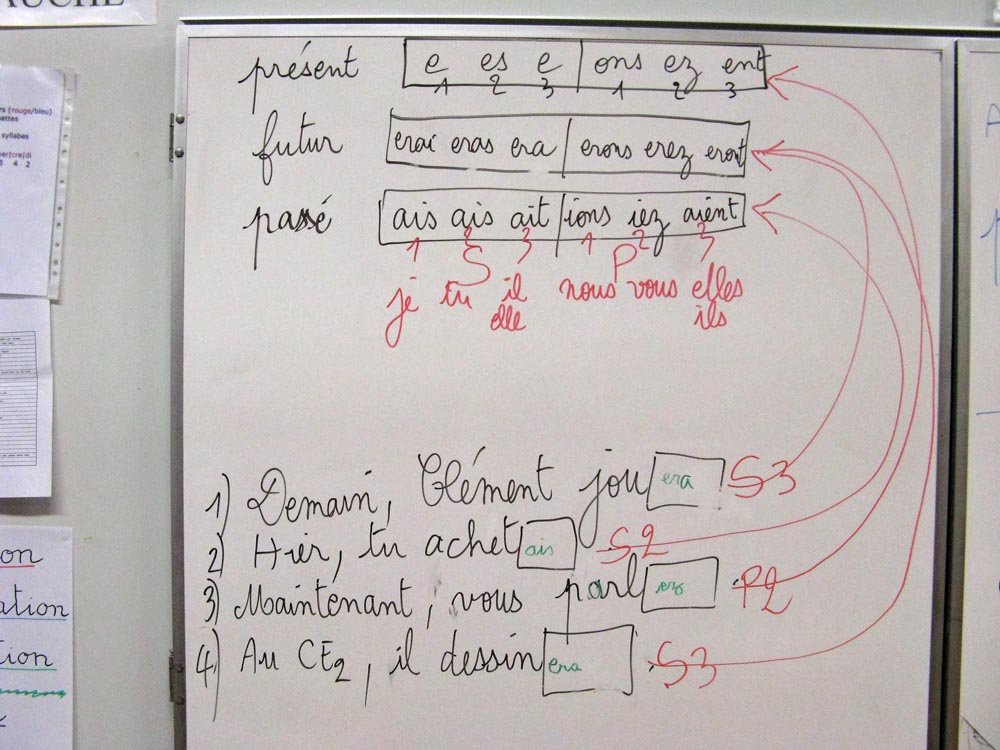 AUCHE
rs (rouge/bleu)
ettes
syllabes
er|cre|di
5 4 2
présent e es e ons ez ent
1 2 3 1 2 3
futur erai eras era erons erez eront
passé ais ais ait ions iez aient
1 2 3 1 2 3
S P
je tu il nous vous elles
elle ils
1) Demain, Clément jou era S3
2) Hier, tu achet ais S2
3) Maintenant, vous parl ez P2
4) Au CE2, il dessin era S3
on
ation
tion